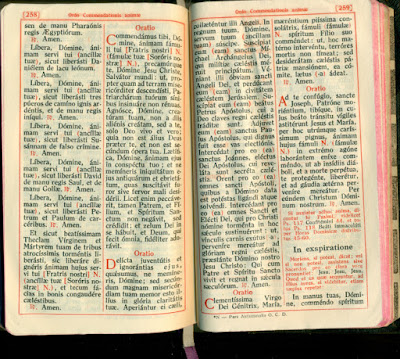 258
Ordo Commendationis animæ
sen de manu Pharaónis
regis Ægyptiórum.
℟. Amen.
Líbera, Dómine, áni-
mam servi tui (ancíllæ
tuæ), sicut liberásti Da-
niélem de lacu leónum.
℟. Amen.
Líbera, Dómine, áni-
mam servi tui (ancíllæ
tuæ), sicut liberásti tres
púeros de camíno ignis ar-
déntis, et de manu regis
iníqui. ℟. Amen.
Líbera, Dómine, áni-
mam servi tui (ancíllæ
tuæ), sicut liberásti Su-
sánnam de falso crímine.
℟. Amen.
Líbera, Dómine, áni-
mam servi tui (ancíllæ
tuæ), sicut liberásti David
de manu regis Saul, et de
manu Golíæ. ℟. Amen.
Líbera, Dómine, áni-
mam servi tui (ancíllæ
tuæ), sicut liberásti Pe-
trum et Paulum de car-
céribus. ℟. Amen.
Et sicut beatíssimam
Theclam Vírginem et
Mártyrem tuam de tribus
atrocíssimis torméntis li-
berásti, sic liberáre di-
gnéris ánimam hujus ser-
vi tui [Fratris nostri] N.
(ancíllæ tuæ [Soróris no-
stræ] N.), et tecum fá-
cias in bonis congaudére
cæléstibus.
℟. Amen.
Oratio
Commendámus tibi, Dó-
mine, ánimam fámu-
li tui [Fratris nostri] N.
(fámulæ tuæ [Soróris no-
stræ] N.), precamúrque
te, Dómine Jesu Christe,
Salvátor mundi: ut, pro-
pter quam ad terram mise-
ricórditer descendísti, Pa-
triarchárum tuórum sínibus
insinuáre non rénuas.
Agnósce, Dómine, crea-
túram tuam, non a diis
aliénis creátam, sed a te,
solo Deo vivo et vero:
quia non est álius Deus
præter te, et non est se-
cúndum ópera tua. Lætí-
fica, Dómine, ánimam ejus
in conspéctu tuo; et ne
memíneris iniquitátum e-
jus antiquárum et ebrietá-
tum, quas suscitávit fu-
ror sive fervor mali desi-
dérii. Licet enim peccáve-
rit, tamen Patrem, et Fí-
lium, et Spíritum San-
ctum non negávit, sed
crédidit; et zelum Dei in
se hábuit, et Deum, qui
fecit ómnia, fidéliter ado-
rávit.
Oratio
Delícta juventútis et
ignorántias ejus,
quǽsumus, ne memíne-
ris, Dómine; sed secún-
dum magnam misericór-
diam tuam memor esto il-
líus in glória claritátis
tuæ. Aperiántur ei cæli,
Ordo Commendationis animæ
259
collæténtur illi Angeli. In
regnum tuum, Dómine,
servum tuum (ancíllam
tuam) súscipe. Suscípiat
eum (eam) sanctus Mí-
chael Archángelus Dei,
qui milítiæ cæléstis mé-
ruit principátum. Vé-
niant illi óbviam sancti
Angeli Dei, et perdúcant
eum (eam) in civitátem
cæléstem Jerúsalem. Su-
scípiat eum (eam) beátus
Petrus Apóstolus, cui a
Deo claves regni cæléstis
tráditæ sunt. Adjuvet
eum (eam) sanctus Pau-
lus Apóstolus, qui dignus
fuit esse vas electiónis.
Intercédat pro eo (ea)
sanctus Joánnes, eléctus
Dei Apóstolus, cui reve-
láta sunt secréta cælé-
stia. Orent pro eo (ea)
omnes sancti Apóstoli,
quibus a Dómino data
est potéstas ligándi atque
solvéndi. Intercédant pro
eo (ea) omnes Sancti et
Elécti Dei, qui pro Christi
nómine torménta in hoc
sǽculo sustinuérunt; ut,
vínculis carnis exútus (-a),
perveníre mereátur ad
glóriam regni cæléstis,
præstánte Dómino nostro
Jesu Christo: Qui cum
Patre et Spíritu Sancto
vivit et regnat in sǽcula
sæculórum. ℟. Amen.
Oratio
Clementíssima Virgo
Dei Génitrix, María,
mæréntium piíssima con-
solátrix, fámuli (fámulæ)
N. spíritum Fílio suo
comméndet; ut, hoc ma-
térno intervéntu, terróres
mortis non tímeat; sed
desiderátam cæléstis pá-
triæ mansiónem, ea có-
mite, lætus (-a) ádeat.
℟. Amen.
Oratio
Ad te confúgio, sancte
Joseph, Patróne mo-
riéntium, tibíque, in cu-
jus beáto tránsitu vígiles
astitérunt Jesus et María,
per hoc utrúmque caríssi-
mum pignus, ánimam
hujus fámuli N. (fámulæ
N.) in extrémo agóne
laborántem enixe com-
méndo, ut ab insídiis diá-
boli, et a morte perpétua,
te protegénte, liberétur,
et ad gáudia ætérna per-
veníre mereátur. Per
eúndem Christum Dómi-
num nostrum. ℟. Amen.
In exspiratione
In manus tuas, Dómi-
ne, comméndo spíritum